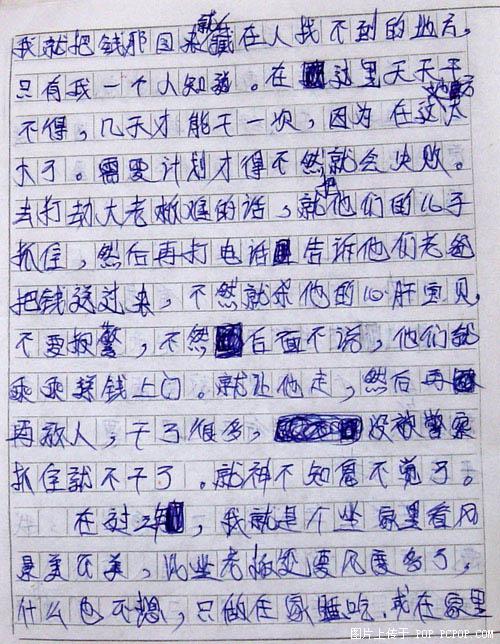 我就把钱那回来就藏在人找不到的地方,
只有我一个人知道。在这里天天干
不得,几天才能干一次,因为在这地方太
大了。需要计划才得不然就会失败。
去打劫大老板难的话,就把他们的儿子
抓住,然后再打电话告诉他们老爸
把钱送过来,不然就杀他的心肝宝贝,
不要报警,不然后面不话,他们就
乖乖拿钱上门。就让他走,然后再
再放人,干了很多,没被警察
抓住就不干了。就神不知鬼不觉了。
在过,我就是个坐家里看风
景美不美,比些老板还要风度多了,
什么也不想,只做在家睡吃,或在家里
图片上传于 POP.PCPOP.COM